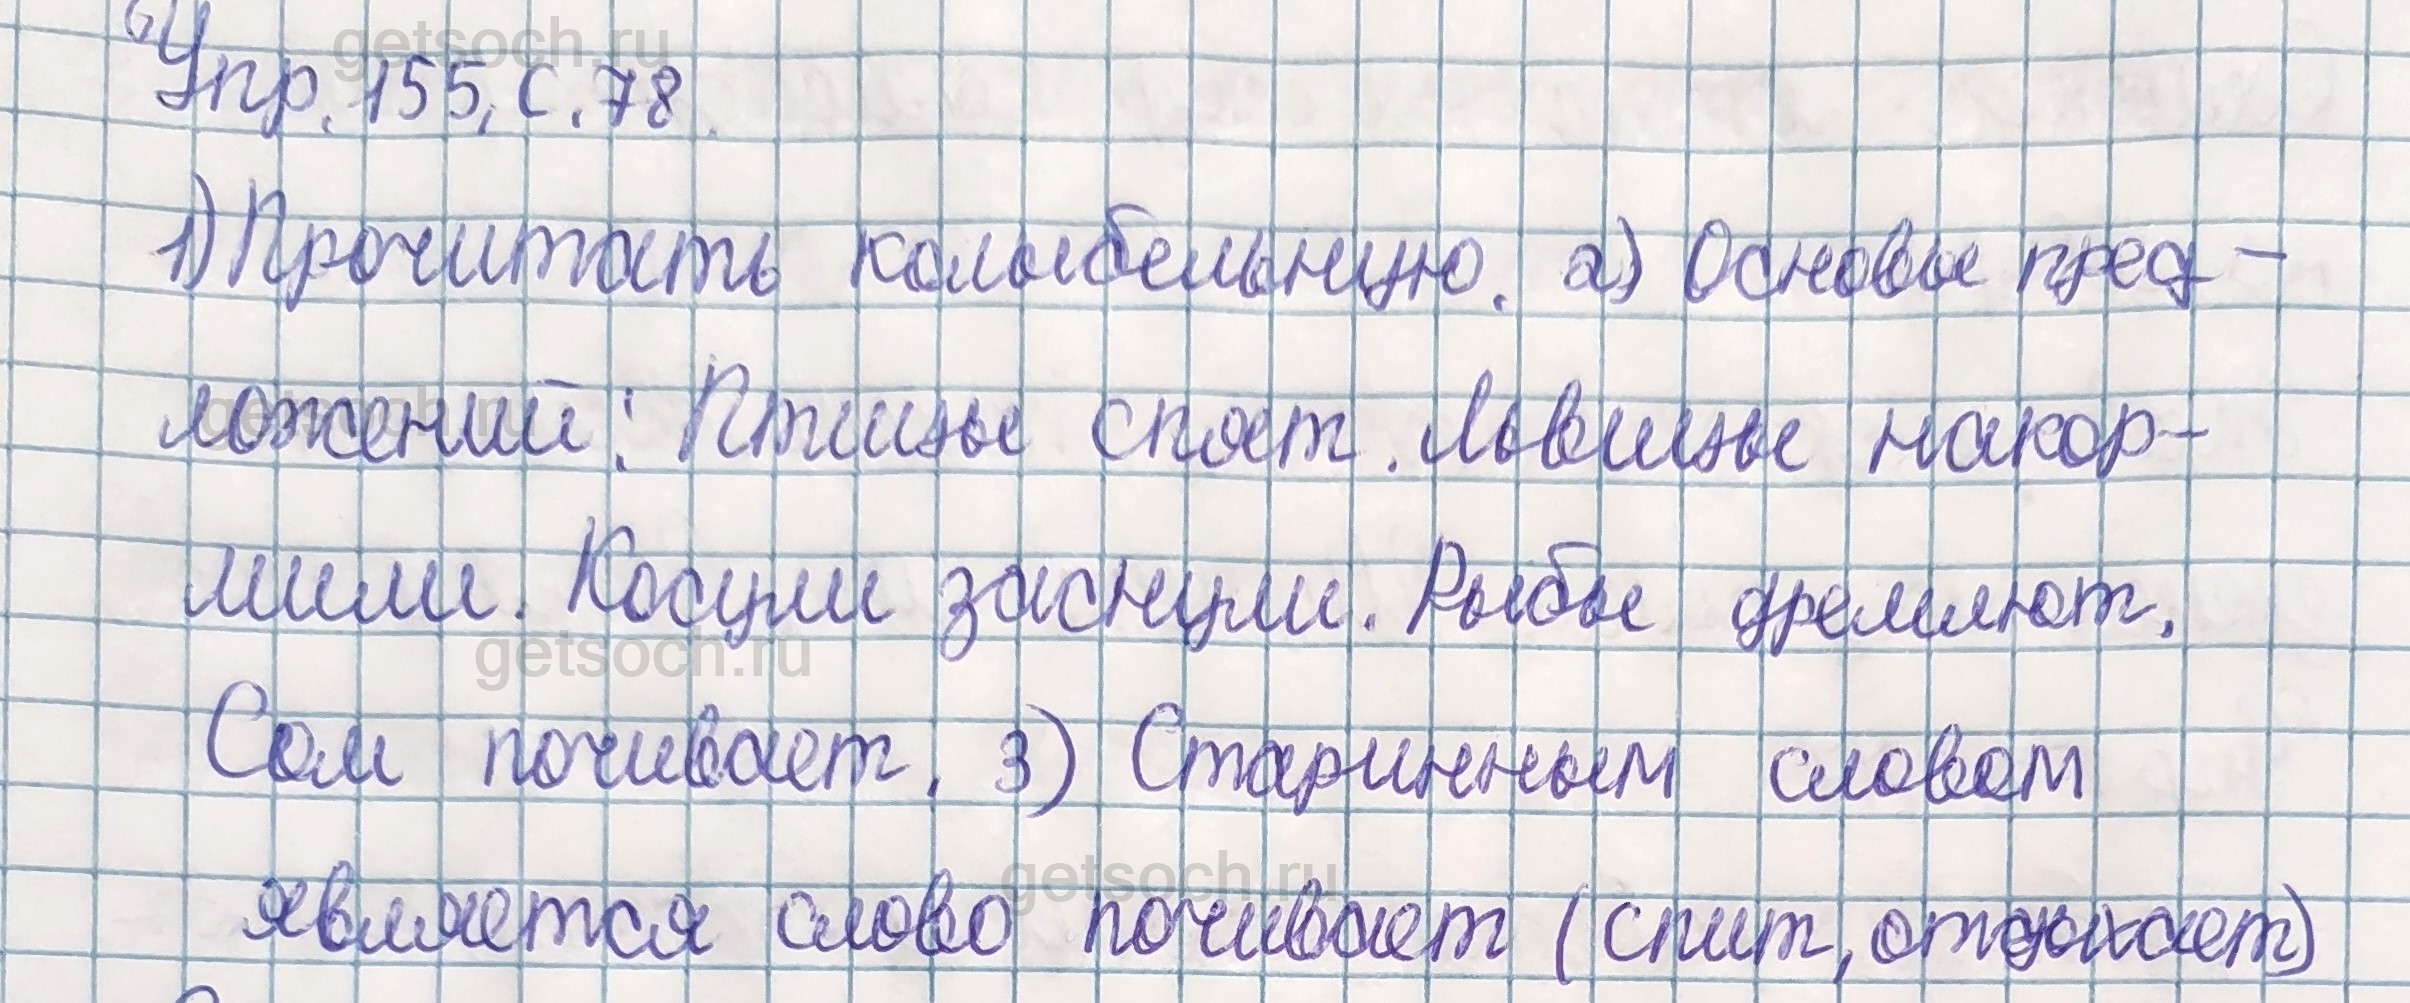 Упр. 155, с. 78.
1) Прочитать колыбельную. а) Основы пред-
ложений: Птицы спят. Львицы накор-
мили. Косули заснули. Рыбы дремлют.
Сом почивает. 3) Старинным словом
является слово почивает (спит, отдыхает)
getsoch.ru
getsoch.ru
getsoch.ru
getsoch.ru